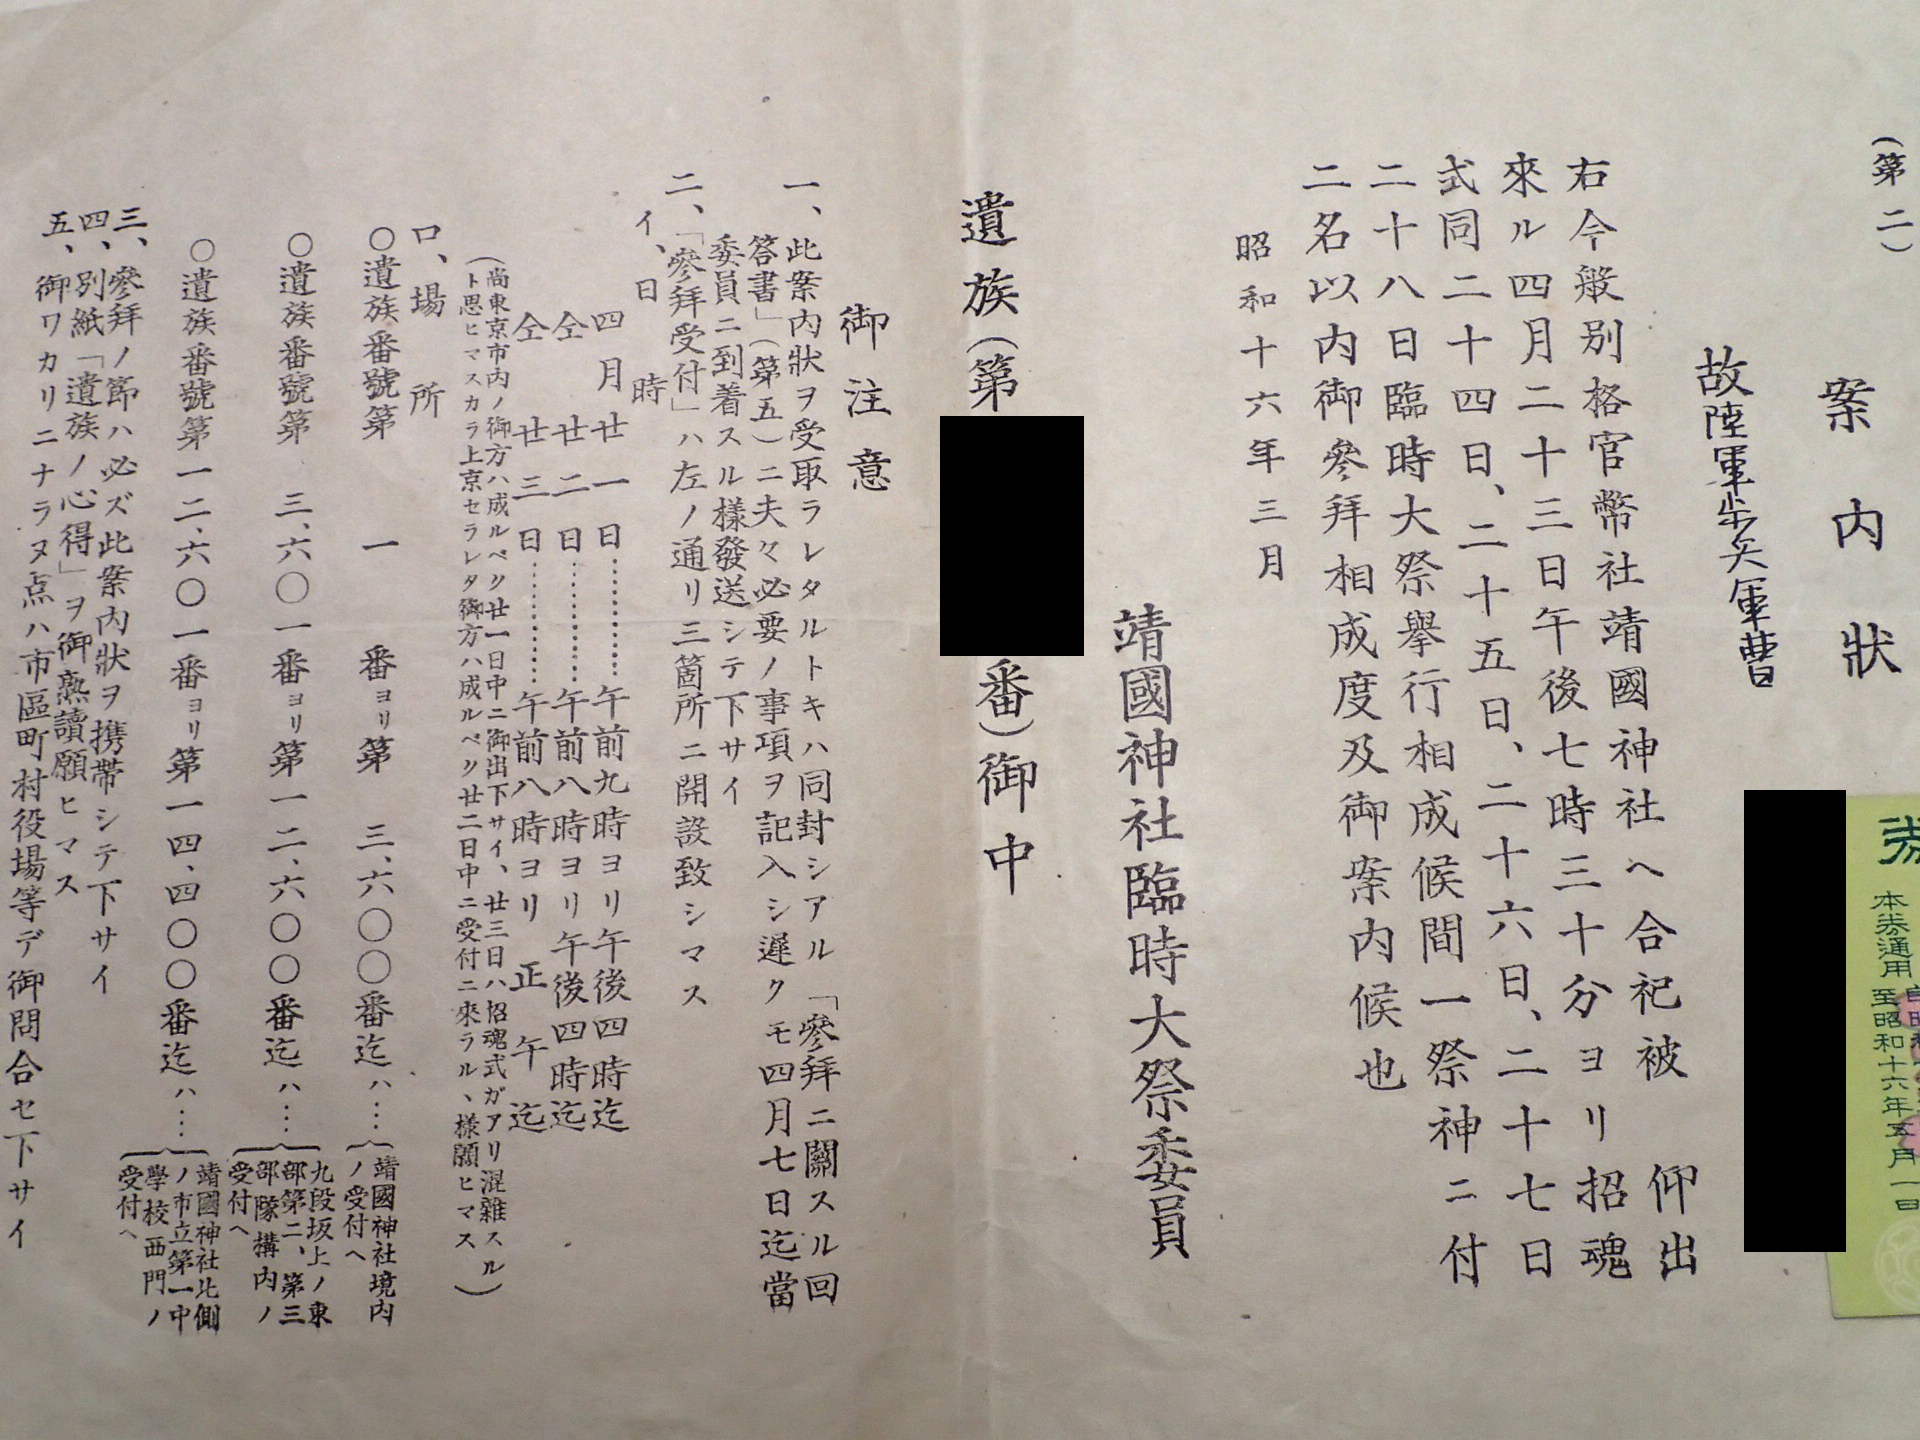 (第二)
案内狀
故陸軍歩兵軍曹
右今般別格官幣社靖國神社ヘ合祀被仰出
來ル四月二十三日午後七時三十分ヨリ招魂
式同二十四日、二十五日、二十六日、二十七日
二十八日臨時大祭擧行相成候間一祭神ニ付
二名以内御參拜相成度及御案内候也
昭和十六年三月
靖國神社臨時大祭委員
遺族(第
番)御中
御注意
一、此案内狀ヲ受取ラレタルトキハ同封シアル「參拜ニ關スル回
答書」(第五)ニ夫々必要ノ事項ヲ記入シ遲クモ四月七日迄當
委員ニ到着スル樣發送シテ下サイ
二、「參拜受付」ハ左ノ通リ三箇所ニ開設致シマス
イ、日時
四月廿一日…………午前九時ヨリ午後四時迄
仝廿二日…………午前八時ヨリ午後四時迄
仝廿三日…………午前八時ヨリ正午迄
(尚東京市内ノ御方ハ成ルベク廿一日中ニ御出下サイ、廿三日ハ招魂式ガアリ混雜スル
ト思ヒマスカラ上京セラレタ御方ハ成ルベク廿二日中ニ受付ニ來ラル、樣願ヒマス)
ロ、場所
〇遺族番號第一番ヨリ第三、六〇〇番迄ハ…
靖國神社境内
ノ受付ヘ
〇遺族番號第三、六〇一番ヨリ第一二、六〇〇番迄ハ…
九段坂上ノ東
部第二、第三
部隊構内ノ
受付ヘ
〇遺族番號第一二、六〇一番ヨリ第一四、四〇〇番迄ハ…
靖國神社北側
ノ市立第一中
學校西門ノ
受付ヘ
三、參拜ノ節ハ必ズ此案内狀ヲ携帶シテ下サイ
四、別紙「遺族ノ心得」ヲ御熟讀願ヒマス
五、御ワカリニナラヌ点ハ市區町村役場等デ御問合セ下サイ
券
本券通用
至昭和十六年五月一日